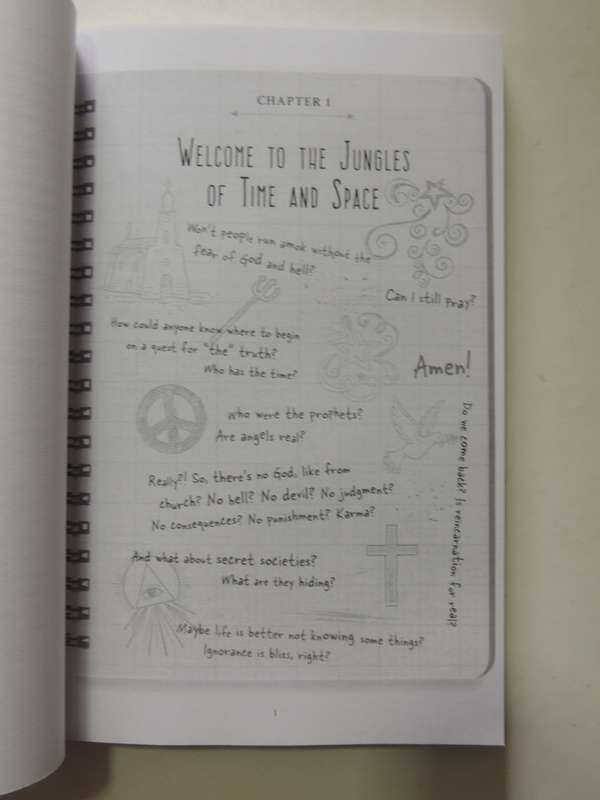 CHAPTER 1
WELCOME TO THE JUNGLES
OF TIME AND SPACE
Won't people run amok without the
fear of God and hell?
Can I still pray?
How could anyone know where to begin
on a quest for "the" truth?
Who has the time?
Amen!
Who were the prophets?
Are angels real?
Do we come back? Is reincarnation for real?
Really?! So, there's no God, like from
church? No hell? No devil? No judgment?
No consequences? No punishment? Karma?
And what about secret societies?
What are they hiding?
Maybe life is better not knowing some things?
Ignorance is bliss, right?
1